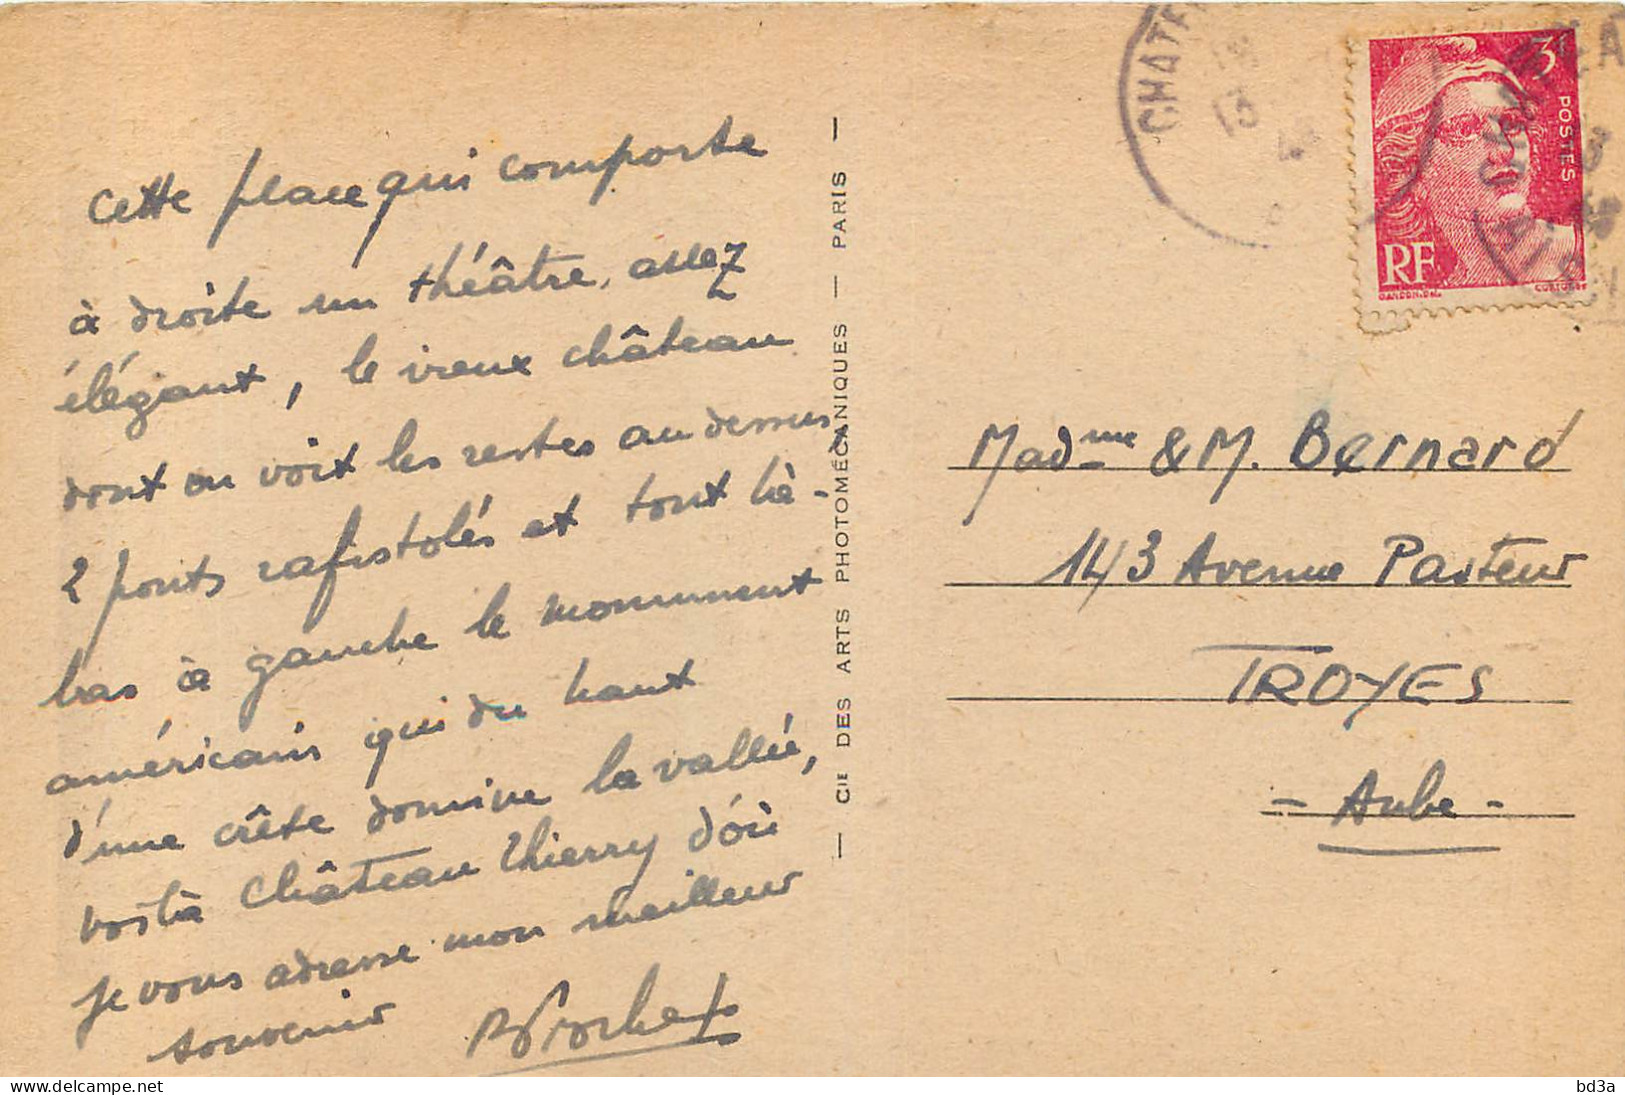 cette place qui comporte
à droite un théâtre, assez
élégant, le vieux château
dont on voit les restes au dessus
2 ponts rafistolés et tout là-
bas à gauche le monument
américain qui du haut
d'une crête domine la vallée,
voilà Château Thierry d'où
je vous adresse mon meilleur
souvenir
— CIE DES ARTS PHOTOMÉCANIQUES — PARIS —
CHATE
13
3F
POSTES
RF
GANDON.Del.
Madme & M. Bernard
143 Avenue Pasteur
TROYES
- Aube -
delcampe.net
bd3a